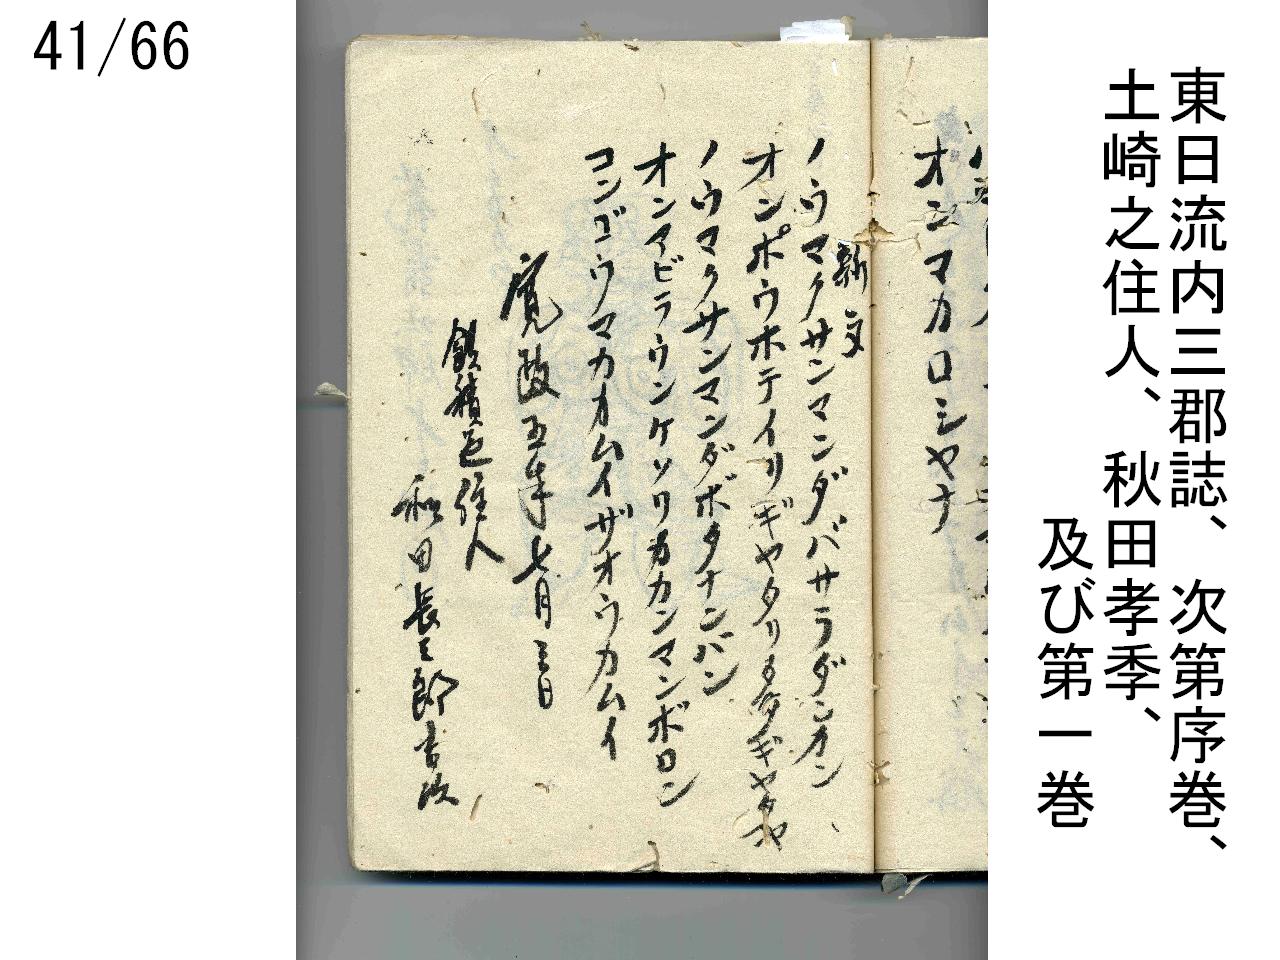 41/66
東日流内三郡誌、次第序巻、
土崎之住人、秋田孝季、
及び第一巻
オンマカロシヤナ
新文
ノウマクサンマンダバサラダンオン
オンボウホテイリギヤタリタタギヤタヤ
ノウマクサンマンダボタナンバン
オンアビラウンケソワカカンマンボロン
コンゴウノマカカムイザオウカムイ
寛政五年七月三日
飯積邑住人
和田長三郎吉次